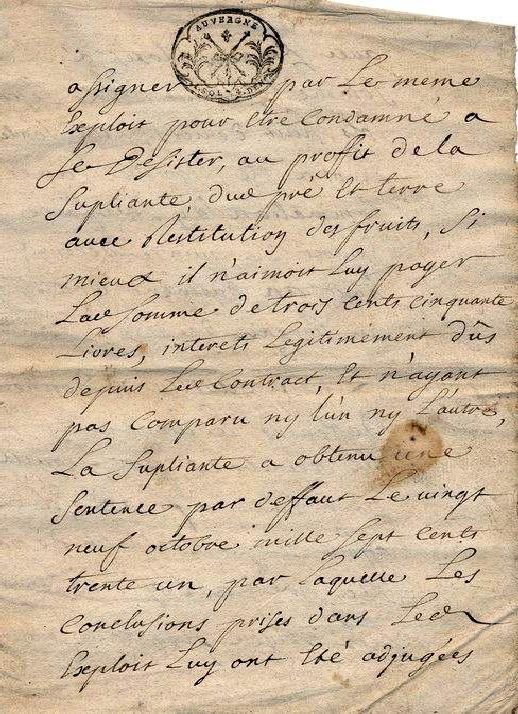 AUVERGNE
SOL
assigner par Le meme
Exploit pour Etre Condamné a
se desister, au profit de la
Supliante, dud pré Et terre
avec Restitution des fruits, Si
mieux il n'aimoit Luy payer
Lad somme de trois cents cinquante
Livres, interets Legitimement dûs
depuis Led Contract, Et n'ayant
pas Comparu ny l'un ny L'autre,
La Supliante a obtenu une
Sentence par deffaut Le vingt
neuf octobre mille sept cents
trente un, par laquelle Les
Conclusions prises dans Led
Exploit Luy ont Eté adjugées